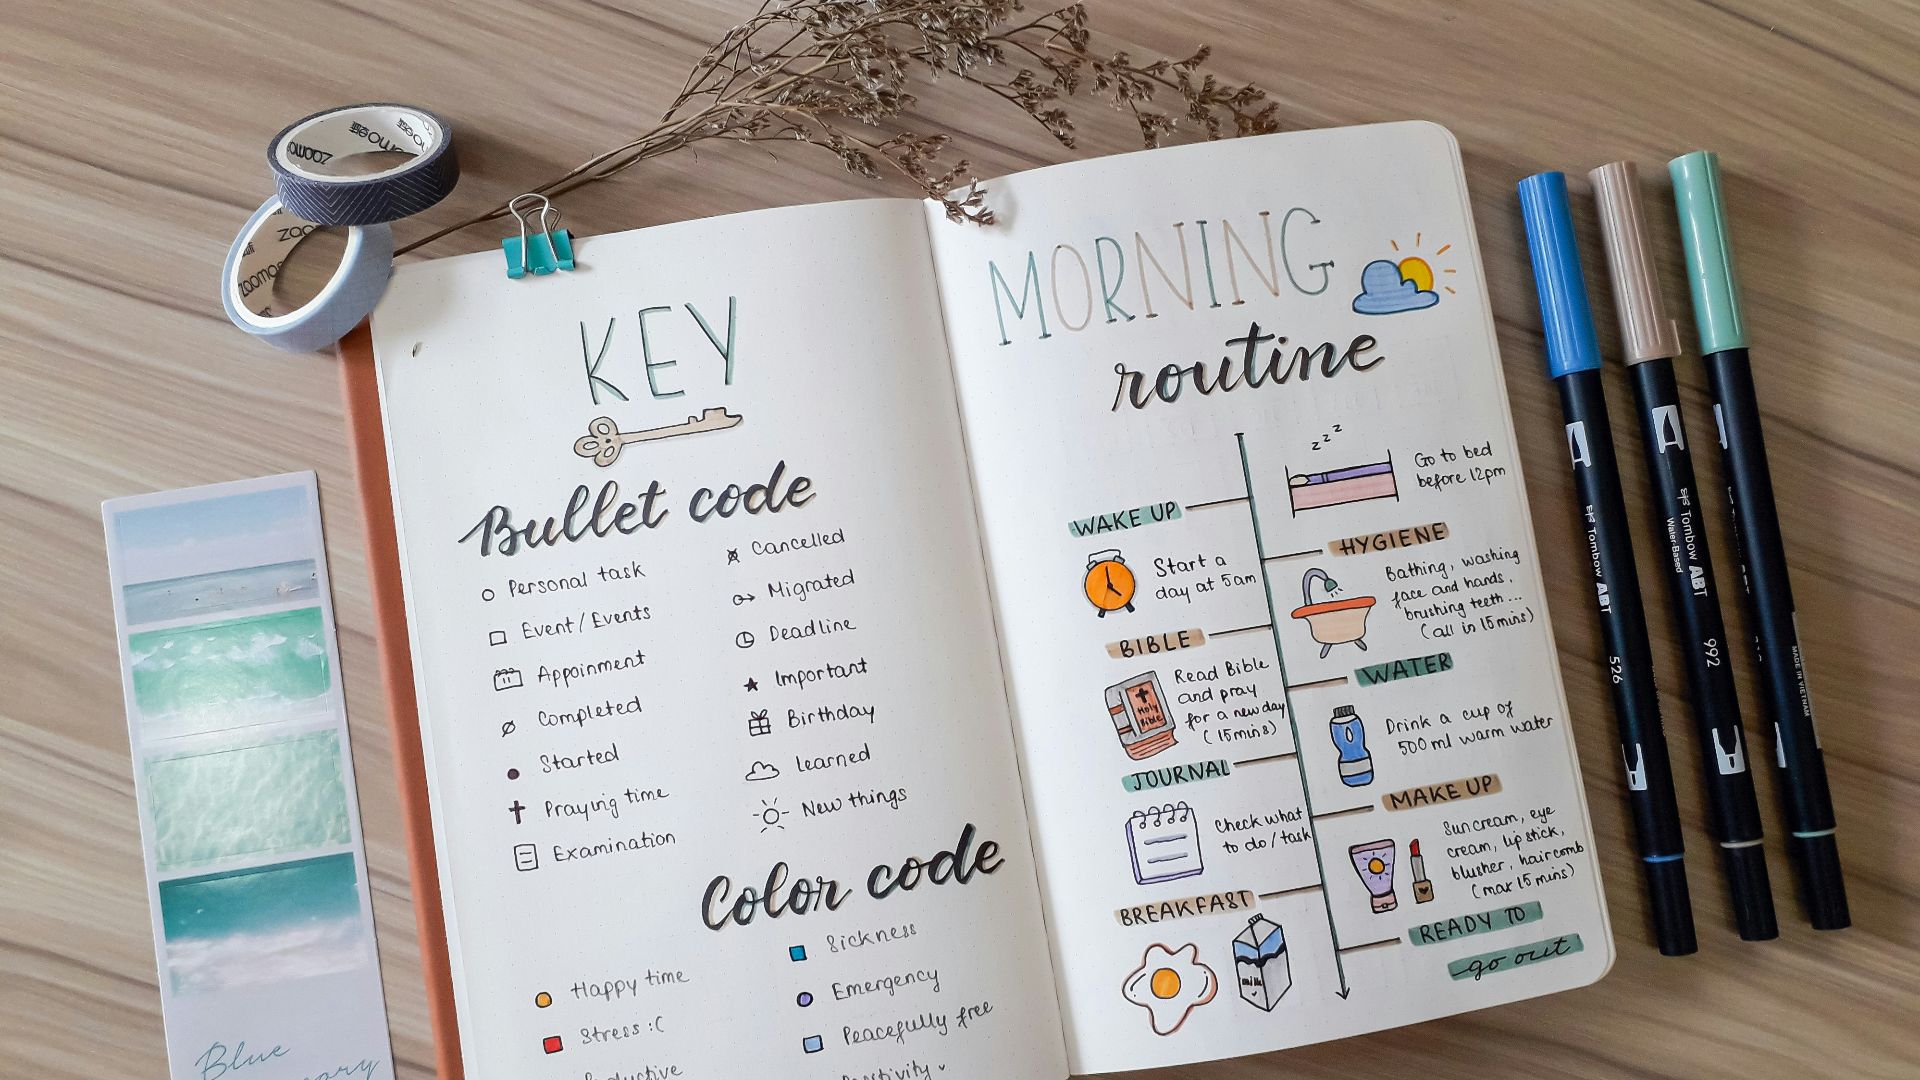 KEY
Bullet code
Personal task
Event/Events
Appoinment
Completed
Started
Praying time
Examination
Cancelled
Migrated
Deadline
Important
Birthday
learned
New things
Color code
Happy time
Stress :(
Sickness
Emergency
Peacefully free
MORNING
routine
zzz
Go to bed
before 12pm
WAKE UP
Start a
day at 5am
HYGIENE
Bathing, washing
face and hands,
brushing teeth...
(all in 15 mins)
BIBLE
Holy
Bible
Read Bible
and pray
for a new day
(15mins)
WATER
Drink a cup of
500 ml warm water
JOURNAL
Check what
to do/task
MAKE UP
Suncream, eye
cream, lipstick,
blusher, haircomb
(max 15 mins)
BREAKFAST
milk
READY TO
go out
Blue
Tombow ABT
526
Tombow ABT
Water-Based
992
MADE IN VIETNAM